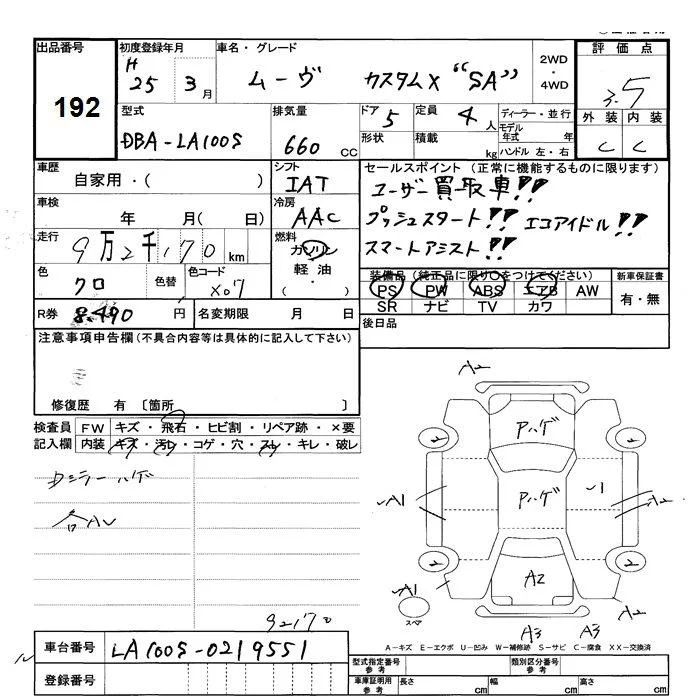 出品番号
192
初度登録年月
H 25 3月
車名・グレード
ムーヴ カスタムX "SA"
2WD
・
4WD
評価点
3.5
外装 内装
C C
型式
DBA-LA100S
排気量
660 CC
ドア 5
形状
定員 4人
積載 kg
ディーラー・並行
モデル年式 年
ハンドル 左・右
車歴
自家用・( )
シフト
IAT
セールスポイント (正常に機能するものに限ります)
ユーザー買取車!!
プッシュスタート!! エコアイドル!!
スマートアシスト!!
車検
年 月( 日)
冷房
AAC
走行
9万2千170km
燃料
ガソリン
軽油・
( )
色
クロ
色替
色コード
X07
装備品(純正品に限り○をつけてください)
PS PW ABS エアB AW
SR ナビ TV カワ
新車保証書
有・無
R券 8.490円
名変期限 月 日
後日品
注意事項申告欄(不具合内容等は具体的に記入して下さい)
修復歴 有 〔箇所 〕
検査員記入欄
FW キズ・飛石・ヒビ割・リペア跡・×要
内装 キズ・汚レ・コゲ・穴・スレ・キレ・破レ
Dミラーハゲ
各AU
92170
A2
Aハゲ
2 2
A1 Aハゲ 1 A2
2 2
A1 A2 A2
スペア
A3 A3
A-キズ E-エクボ U-凹み W-補修跡 S-サビ C-腐食 XX-交換済
車台番号 LA100S-0219551
登録番号
型式指定番号 参考
類別区分番号 参考
車庫証明用 参考
長さ cm 幅 cm 高さ cm